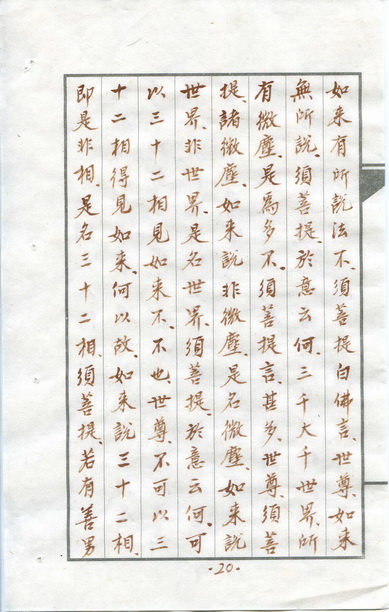 如来有所說法不、須菩提白佛言、世尊、如来
無所說、須菩提、於意云何、三千大千世界、所
有微塵、是為多不、須菩提言、甚多、世尊、須菩
提、諸微塵、如来說非微塵、是名微塵、如来說
世界、非世界、是名世界、須菩提、於意云何、可
以三十二相見如来不、不也、世尊、不可以三
十二相得見如来、何以故、如来說三十二相、
即是非相、是名三十二相、須菩提、若有善男
·20·